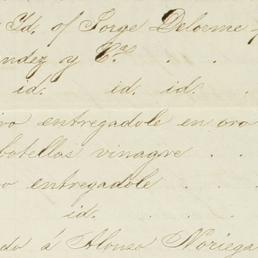 Id. of Jorge Delorme y
ndez y Ca. . .
id. id. id. .
vo entregadole en oro
botellas vinagre . .
o entregadole . .
id. . . . .
do á Alonso Noriega